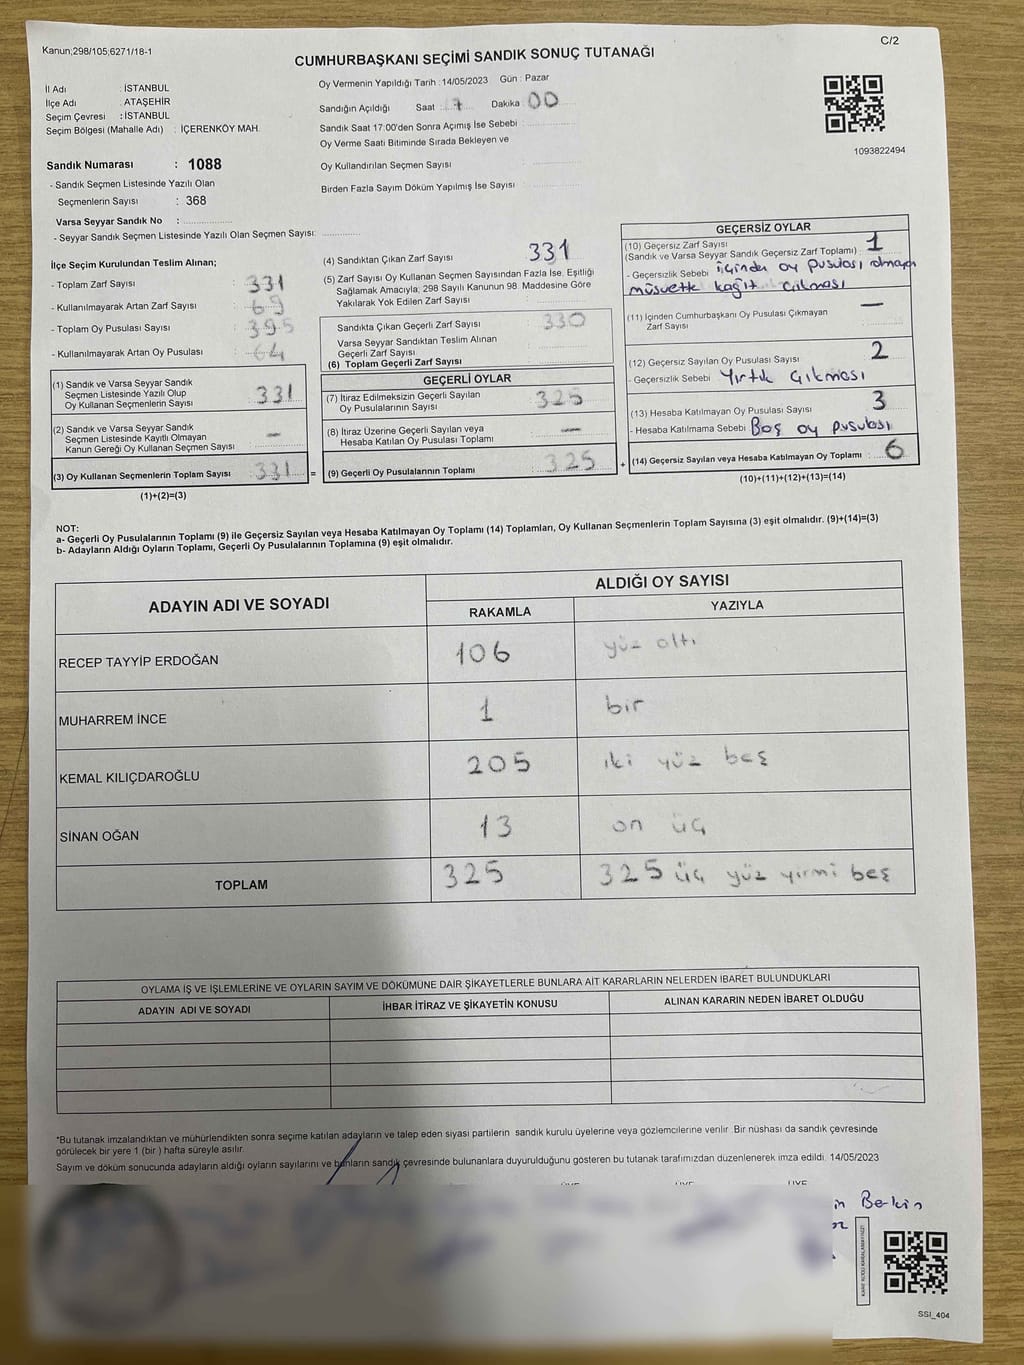 Kanun;298/105;6271/18-1
C/2
CUMHURBAŞKANI SEÇİMİ SANDIK SONUÇ TUTANAĞI
İl Adı : İSTANBUL
İlçe Adı : ATAŞEHİR
Seçim Çevresi : İSTANBUL
Seçim Bölgesi (Mahalle Adı) : İÇERENKÖY MAH.
Sandık Numarası : 1088
- Sandık Seçmen Listesinde Yazılı Olan
Seçmenlerin Sayısı : 368
Varsa Seyyar Sandık No :
- Seyyar Sandık Seçmen Listesinde Yazılı Olan Seçmen Sayısı:
Oy Vermenin Yapıldığı Tarih : 14/05/2023 Gün : Pazar
Sandığın Açıldığı Saat : 7 Dakika 00
Sandık Saat 17:00'den Sonra Açımış İse Sebebi :
Oy Verme Saati Bitiminde Sırada Bekleyen ve
Oy Kullandırılan Seçmen Sayısı :
Birden Fazla Sayım Döküm Yapılmış İse Sayısı :
1093822494
İlçe Seçim Kurulundan Teslim Alınan;
- Toplam Zarf Sayısı : 331
- Kullanılmayarak Artan Zarf Sayısı : 69
- Toplam Oy Pusulası Sayısı : 395
- Kullanılmayarak Artan Oy Pusulası : 64
(1) Sandık ve Varsa Seyyar Sandık
Seçmen Listesinde Yazılı Olup
Oy Kullanan Seçmenlerin Sayısı : 331
(2) Sandık ve Varsa Seyyar Sandık
Seçmen Listesinde Kayıtlı Olmayan
Kanun Gereği Oy Kullanan Seçmen Sayısı : —
(3) Oy Kullanan Seçmenlerin Toplam Sayısı : 331
(1)+(2)=(3)
(4) Sandıktan Çıkan Zarf Sayısı 331
(5) Zarf Sayısı Oy Kullanan Seçmen Sayısından Fazla İse, Eşitliği
Sağlamak Amacıyla; 298 Sayılı Kanunun 98. Maddesine Göre
Yakılarak Yok Edilen Zarf Sayısı :
Sandıkta Çıkan Geçerli Zarf Sayısı : 330
Varsa Seyyar Sandıktan Teslim Alınan
Geçerli Zarf Sayısı
(6) Toplam Geçerli Zarf Sayısı
GEÇERLİ OYLAR
(7) İtiraz Edilmeksizin Geçerli Sayılan
Oy Pusulalarının Sayısı : 325
(8) İtiraz Üzerine Geçerli Sayılan veya
Hesaba Katılan Oy Pusulası Toplamı : —
= (9) Geçerli Oy Pusulalarının Toplamı : 325
GEÇERSİZ OYLAR
(10) Geçersiz Zarf Sayısı
(Sandık ve Varsa Seyyar Sandık Geçersiz Zarf Toplamı) : 1
- Geçersizlik Sebebi içinden oy pusulası olmayıp
müsvette kağıt çıkması
(11) İçinden Cumhurbaşkanı Oy Pusulası Çıkmayan
Zarf Sayısı : —
(12) Geçersiz Sayılan Oy Pusulası Sayısı : 2
- Geçersizlik Sebebi Yırtık çıkması
(13) Hesaba Katılmayan Oy Pusulası Sayısı : 3
- Hesaba Katılmama Sebebi Boş oy pusulası
+ (14) Geçersiz Sayılan veya Hesaba Katılmayan Oy Toplamı : 6
(10)+(11)+(12)+(13)=(14)
NOT:
a- Geçerli Oy Pusulalarının Toplamı (9) ile Geçersiz Sayılan veya Hesaba Katılmayan Oy Toplamı (14) Toplamları, Oy Kullanan Seçmenlerin Toplam Sayısına (3) eşit olmalıdır. (9)+(14)=(3)
b- Adayların Aldığı Oyların Toplamı, Geçerli Oy Pusulalarının Toplamına (9) eşit olmalıdır.
ADAYIN ADI VE SOYADI
ALDIĞI OY SAYISI
RAKAMLA YAZIYLA
RECEP TAYYİP ERDOĞAN 106 yüz altı
MUHARREM İNCE 1 bir
KEMAL KILIÇDAROĞLU 205 iki yüz beş
SİNAN OĞAN 13 on üç
TOPLAM 325 325 üç yüz yirmi beş
OYLAMA İŞ VE İŞLEMLERİNE VE OYLARIN SAYIM VE DÖKÜMÜNE DAİR ŞİKAYETLERLE BUNLARA AİT KARARLARIN NELERDEN İBARET BULUNDUKLARI
ADAYIN ADI VE SOYADI İHBAR İTİRAZ VE ŞİKAYETİN KONUSU ALINAN KARARIN NEDEN İBARET OLDUĞU
*Bu tutanak imzalandıktan ve mühürlendikten sonra seçime katılan adayların ve talep eden siyasi partilerin sandık kurulu üyelerine veya gözlemcilerine verilir. Bir nüshası da sandık çevresinde
görülecek bir yere 1 (bir) hafta süreyle asılır.
Sayım ve döküm sonucunda adayların aldığı oyların sayılarını ve bunların sandık çevresinde bulunanlara duyurulduğunu gösteren bu tutanak tarafımızdan düzenlenerek imza edildi. 14/05/2023
ÜYE ÜYE ÜYE
Berkin
SSI_404